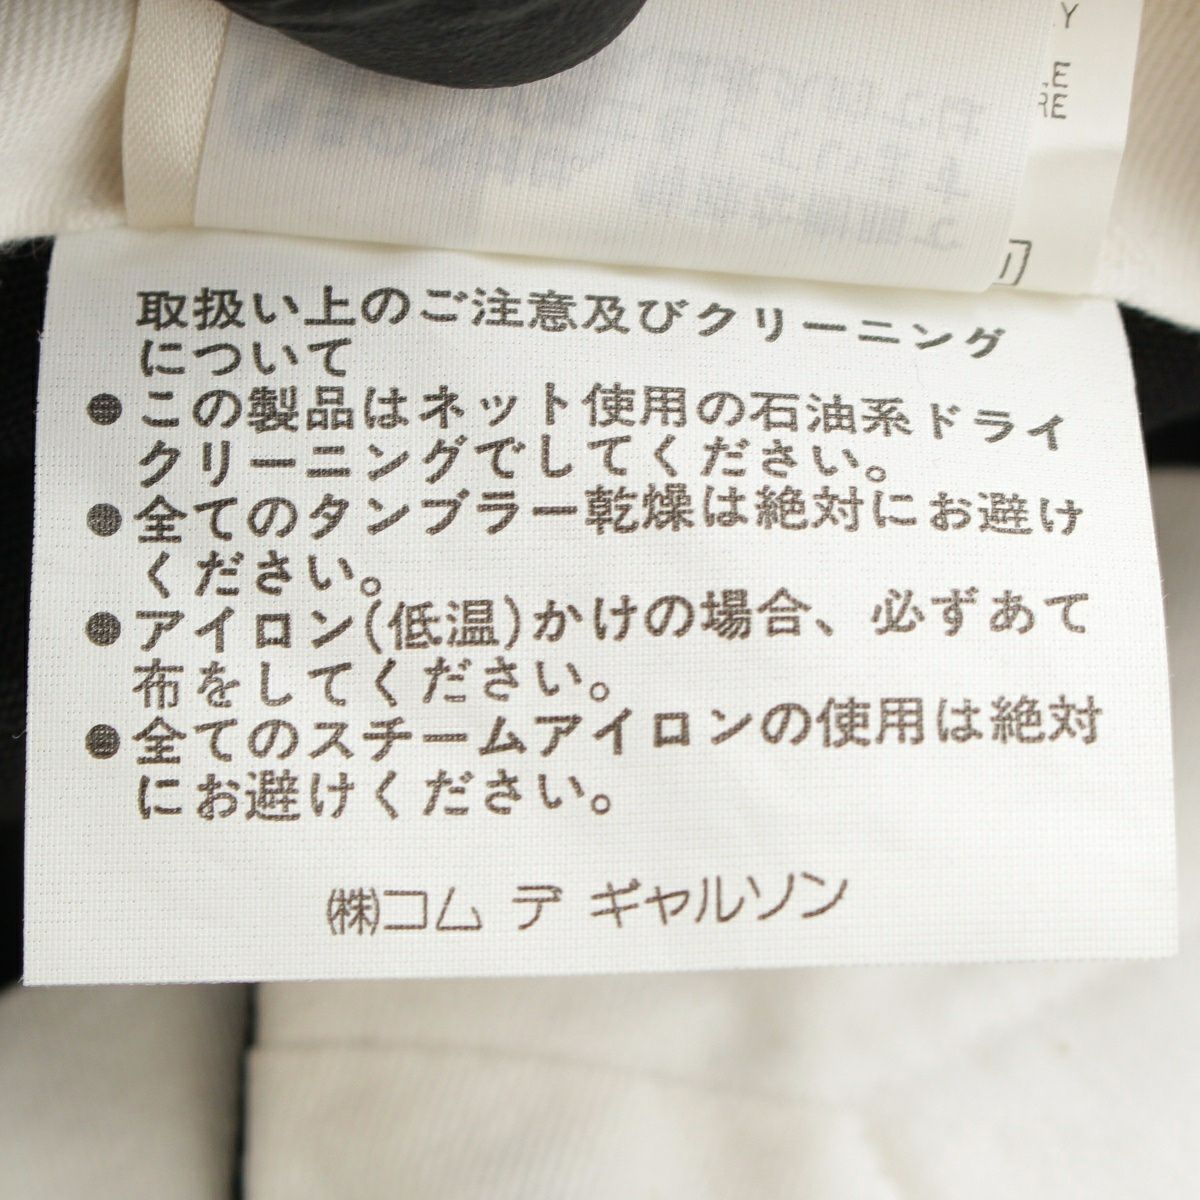 Y
LE
RE
取扱い上のご注意及びクリーニング
について
●この製品はネット使用の石油系ドライ
クリーニングでしてください。
●全てのタンブラー乾燥は絶対にお避け
ください。
●アイロン(低温)かけの場合、必ずあて
布をしてください。
●全てのスチームアイロンの使用は絶対
にお避けください。
㈱コム デ ギャルソン